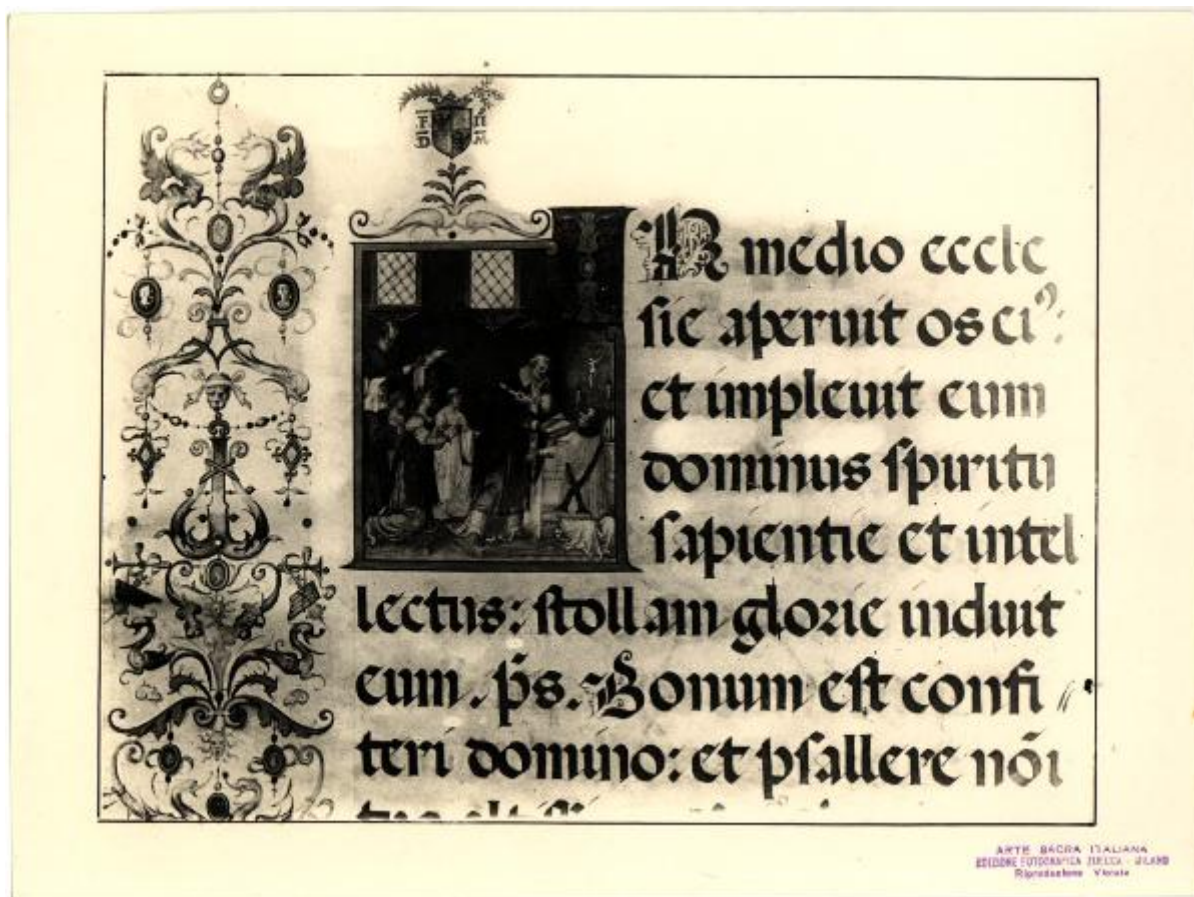 IN medio eccle
ſie aperuit os eiꝰ:
et impleuit eum
dominus ſpiritu
ſapientie et intel
lectus: ſtollam glorie induit
eum. p̄s. Bonum eſt confi
teri domino: et pſallere nōi
ARTE SACRA ITALIANA
EDIZIONE FOTOGRAFICA - MILANO
Riproduzione Vietata